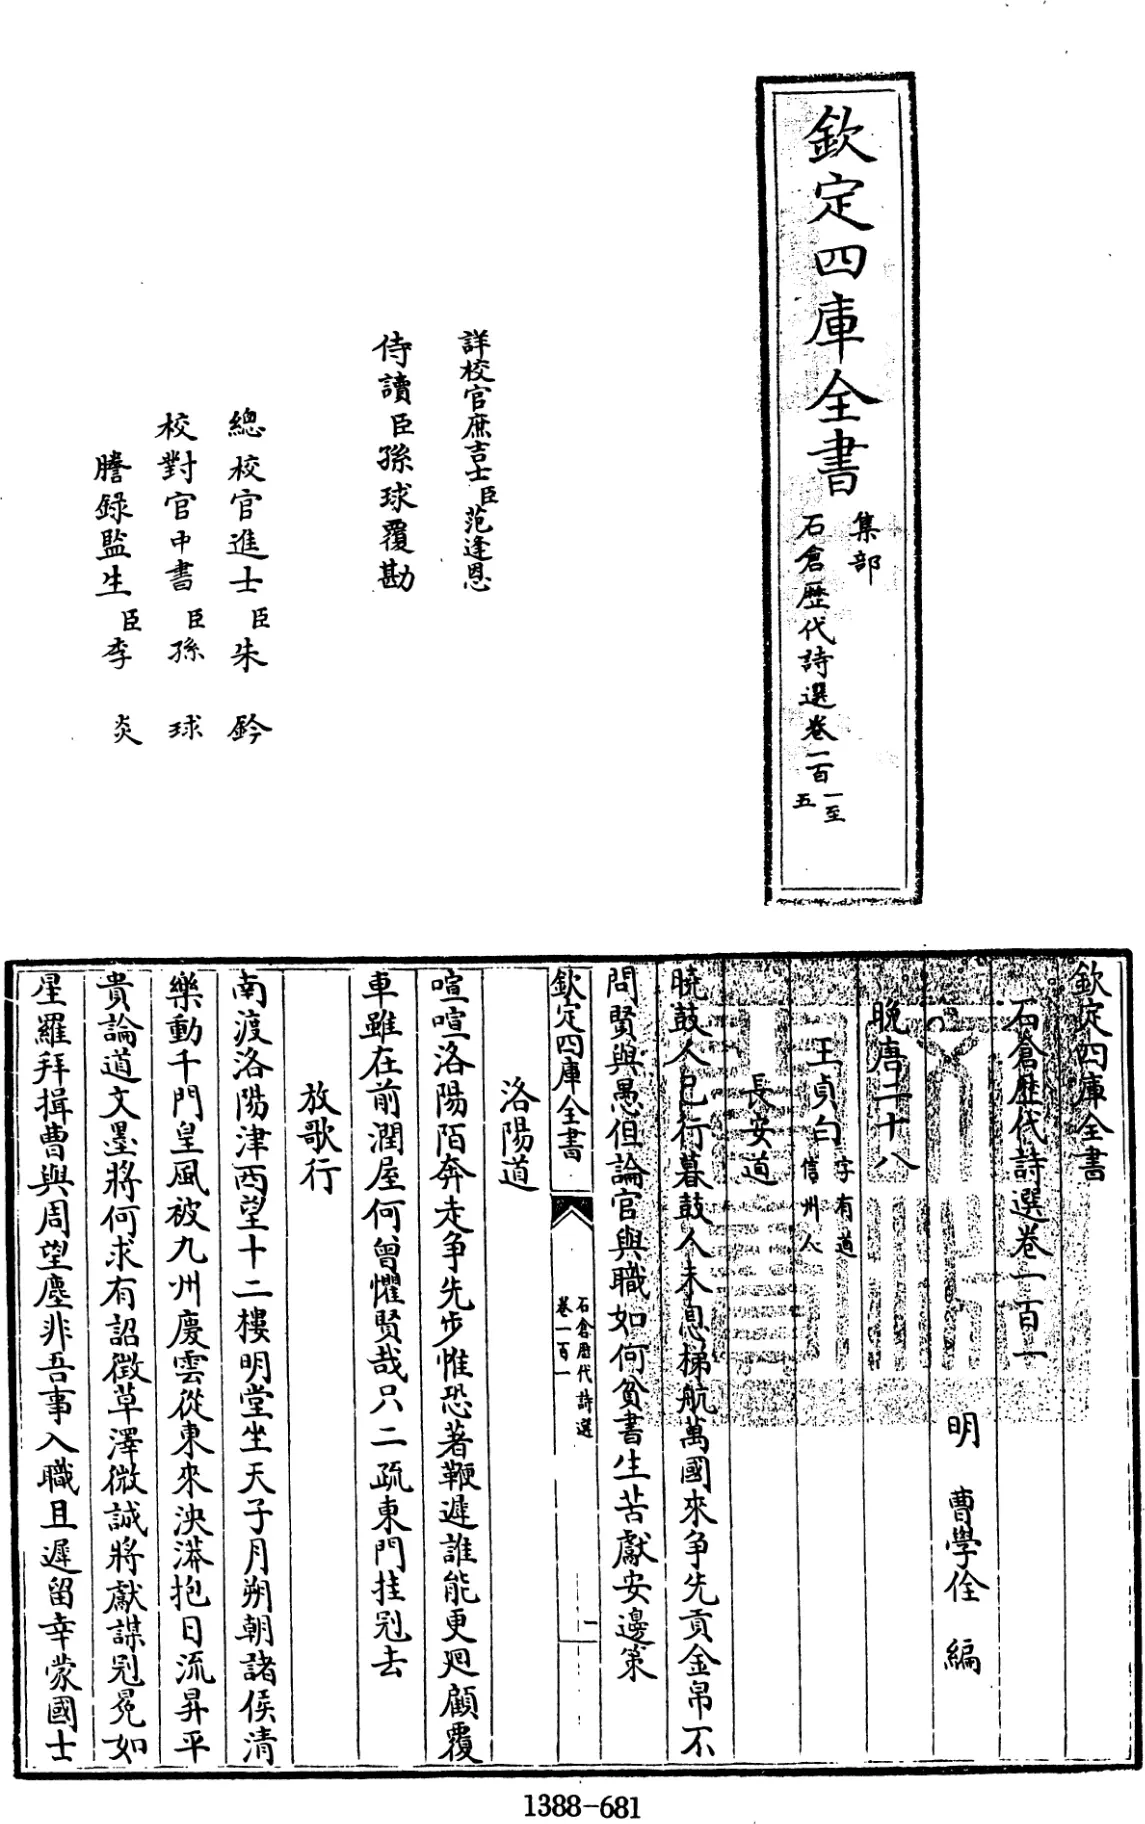 欽定四庫全書
集部
石倉歷代詩選卷一百一至五
詳校官庶吉士臣范逢恩
侍讀臣孫球覆勘
總校官進士臣朱鈐
校對官中書臣孫球
謄錄監生臣李炎
欽定四庫全書
石倉歷代詩選卷一百一
明 曹學佺 編
晚唐二十八
王貞白字有道信州人
長安道
曉鼓人已行暮鼓人未息梯航萬國來争先貢金帛不
問賢與愚但論官與職如何貧書生苦獻安邊策
欽定四庫全書
石倉歷代詩選
卷一百一
一
洛陽道
喧喧洛陽陌奔走争先步惟恐著鞭遲誰能更廻顧覆
車雖在前潤屋何曾懼賢哉只二疏東門挂冠去
放歌行
南渡洛陽津西望十二樓明堂坐天子月朔朝諸侯清
樂動千門皇風被九州慶雲從東來泱漭抱日流昇平
貴論道文墨將何求有詔徵草澤微誠將獻謀冠冕如
星羅拜揖曹與周望塵非吾事入職且遲留幸蒙國士
1388-681